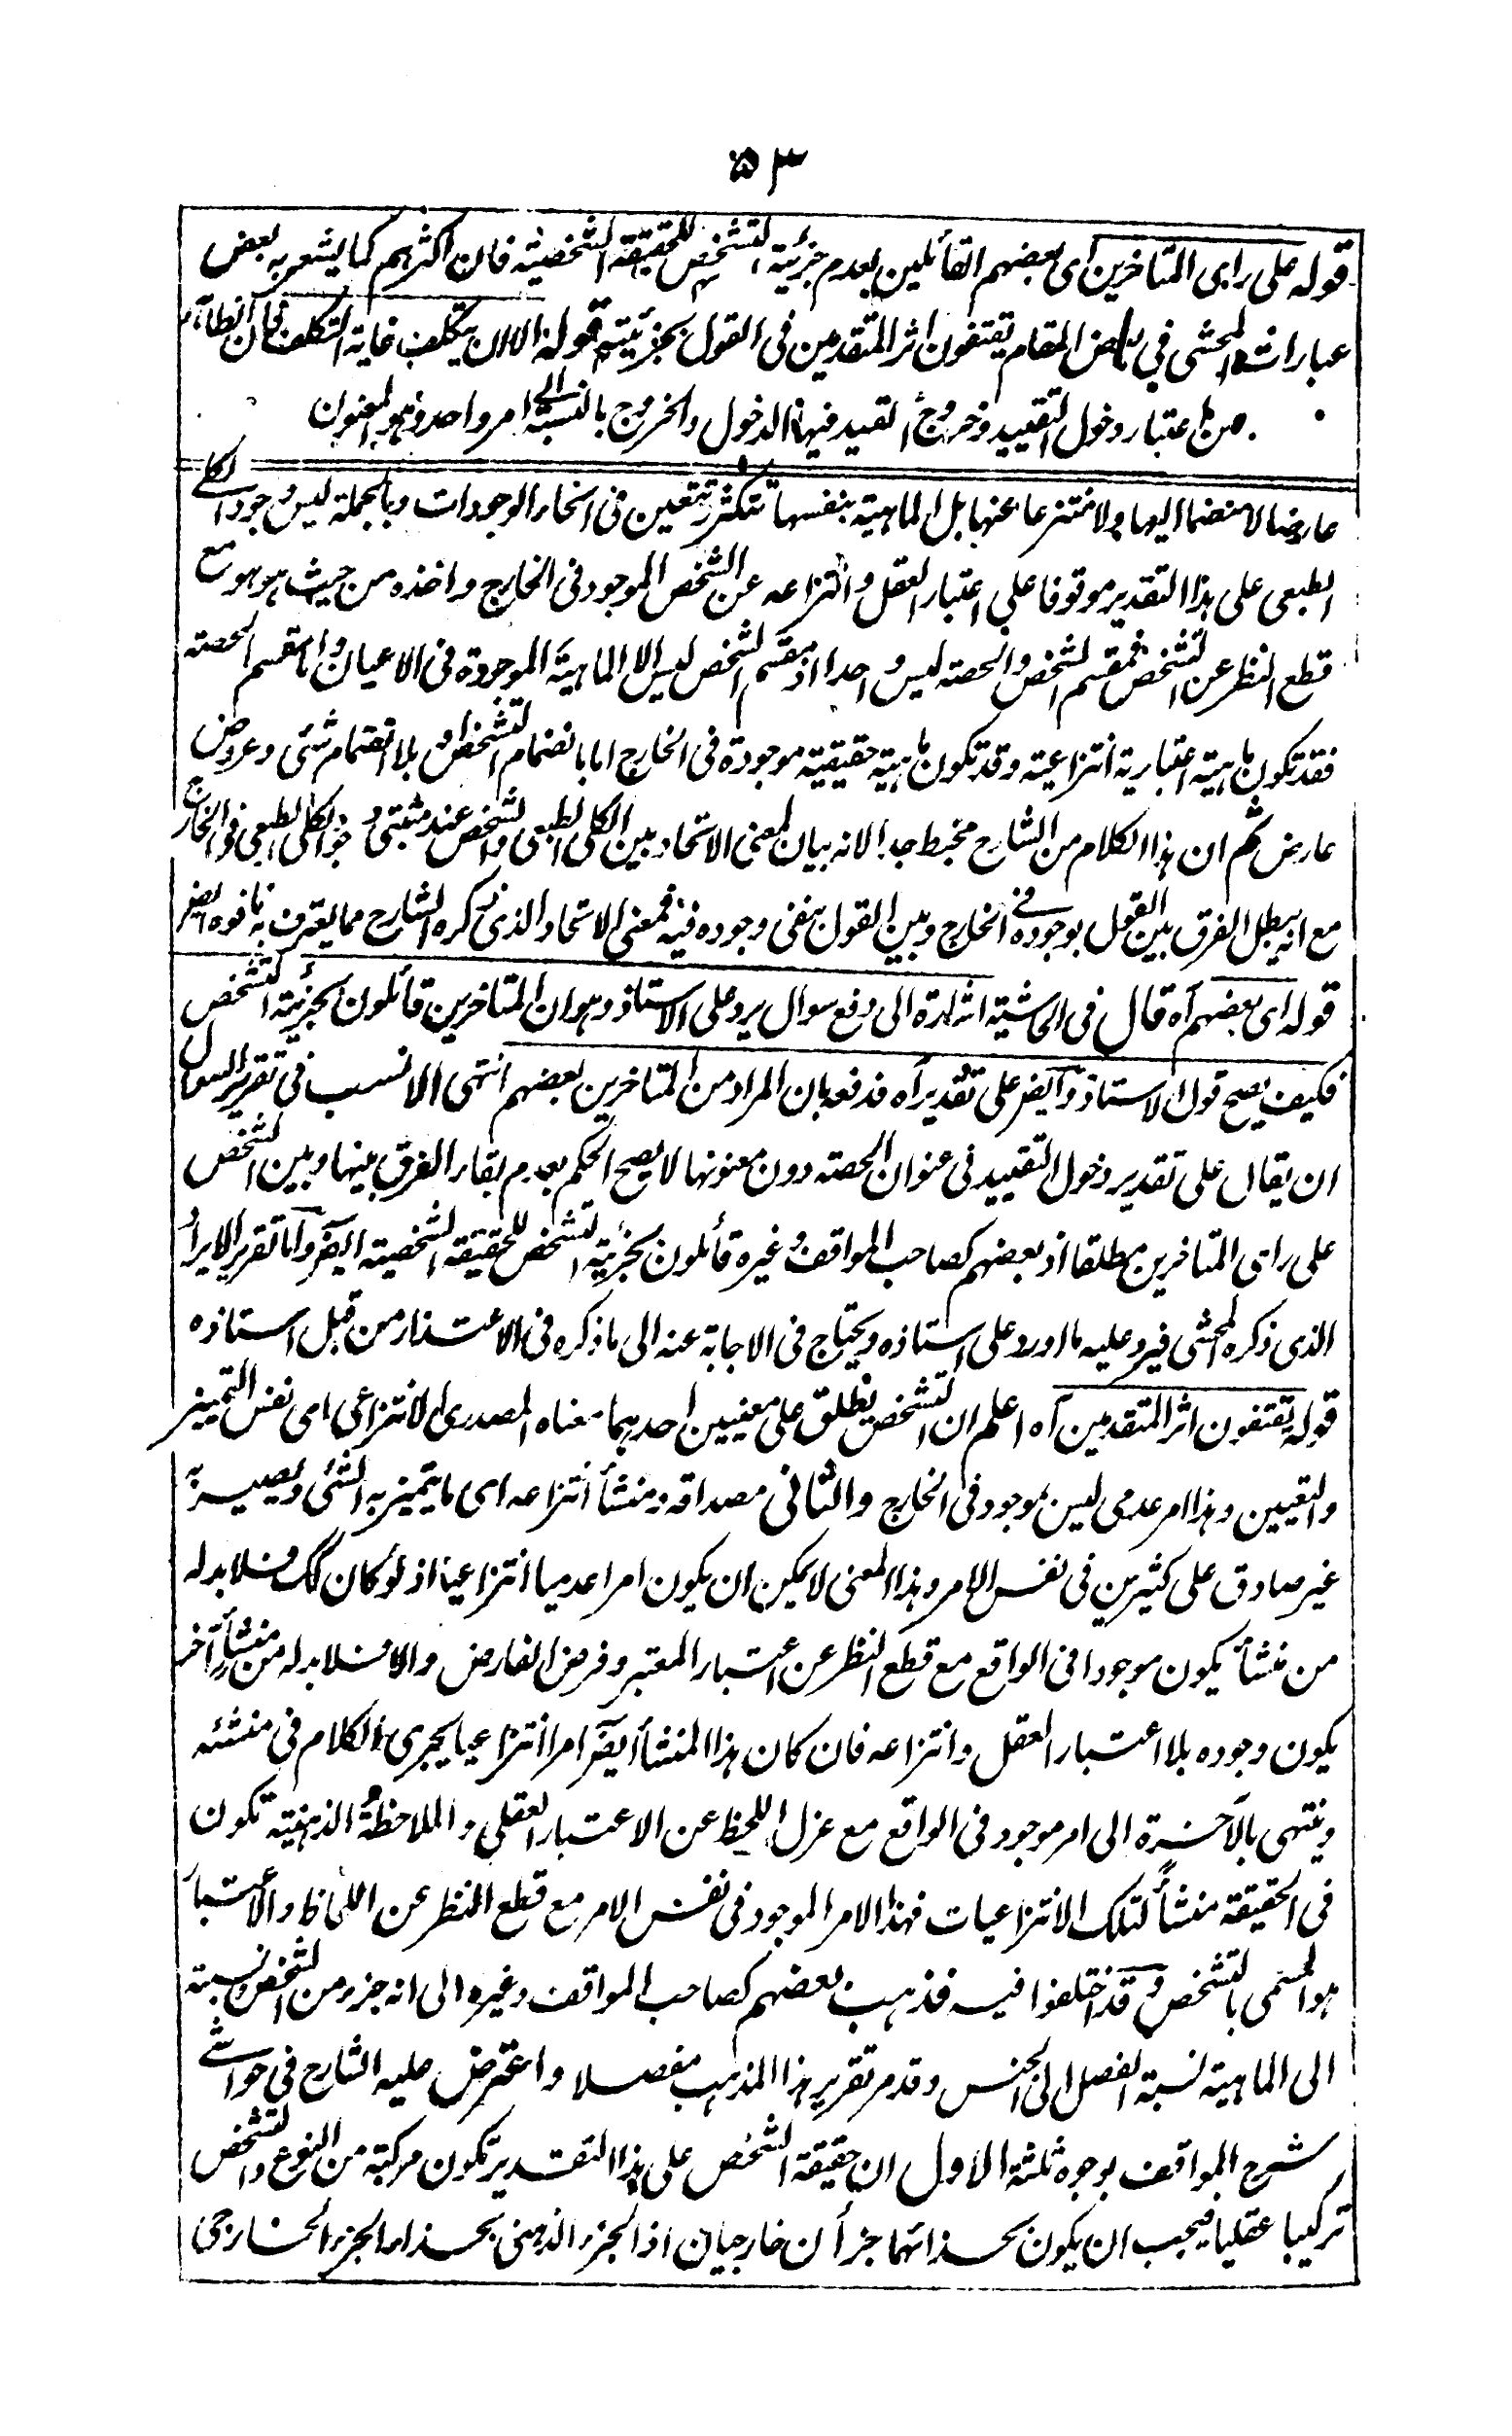 ۵۳
قوله على راى المتاخرين اى بعضهم القائلين بعدم جزئية التشخص للحقيقة الشخصية فان اكثرهم كما يشعر به بعض
عبارات المحشى في بعض المقام يقتفون اثر المتقدمين فى القول بجزئيته قوله الا ان يتكلف غاية التكلف فان الظاهر
من اعتبار دخول التقييد وخروج القيد فيها الدخول والخروج بالنسبة الى امر واحد وهو المعنون
عارضا لا منضما اليها ولا منتزعا عنها بل الماهية بنفسها تتكثر وتتعين فى انحاء الوجودات وبالجملة ليس وجود الكلے
الطبعى على هذا التقدير موقوفا على اعتبار العقل وانتزاعه عن الشخص الموجود فى الخارج واخذه من حيث هو هو مع
قطع النظر عن التشخص فمقسم الشخص والحصة ليس واحدا اذ مقسم الشخص ليس الا الماهية الموجودة فى الاعيان واما مقسم الحصته
فقد تكون ماهية اعتبارية انتزاعية وقد تكون ماهية حقيقية موجودة فى الخارج اما بانضمام التشخص او بلا انضمام شئى وعروض
عارض ثم ان هذا الكلام من الشارح مخبط جدا لانه بيان لمعنى الاتحاد بين الكلى الطبعى والشخص عند مثبتى وجود الكلى الطبعى فى الخارج
مع انه يبطل الفرق بين القول بوجوده فے الخارج وبين القول بنفى وجوده فيه فمعنى الاتحاد الذى ذكره الشارح مما يعترف به نافوه ايضر
قوله اى بعضهم آه قال فى الحاشية اشارة الى دفع سوال يرد على الاستاذ وهو ان المتاخرين قائلون بجزئية التشخص
فكيف يصح قول الاستاذ وآيضر على تقدير آه فدفعه بان المراد من المتاخرين بعضهم انتهى الانسب فى تقرير السوال
ان يقال على تقدير دخول التقييد فى عنوان الحصته دون معنونها لا يصح الحكم بعدم بقاء الفرق بينها وبين الشخص
على راى المتاخرين مطلقا اذ بعضهم كصاحب المواقف وغيره قائلون بجزئية التشخص للحقيقة الشخصية ايضر وآما تقرير الايراد
الذى ذكره المحشى فيرد عليه ما اورد على استاذه ويحتاج فى الاجابة عنه الى ما ذكره فى الاعتذار من قبل استاذه
قوله يقتفون اثر المتقدمين آه اعلم ان التشخص يطلق على معنيين احدهما معناه المصدرى الانتزاعى اى نفس التميز
والتعيين وهذا امر عدمى ليس بموجود فى الخارج والثانى مصداقه ومنشأ انتزاعه اى ما يتميز به الشئى ويصير به
غير صادق على كثيرين فى نفس الامر وهذا المعنى لا يمكن ان يكون امرا عدميا انتزاعيا اذ لو كان كك فلا بد له
من منشأ يكون موجودا فى الواقع مع قطع النظر عن اعتبار المعتبر وفرض الفارض والا فلا بد له من منشأ آخر
يكون وجوده بلا اعتبار العقل وانتزاعه فان كان هذا المنشأ ايضر امرا انتزاعيا يجرى الكلام فى منشئه
وينتهى بالآخرة الى امر موجود فى الواقع مع عزل اللحظ عن الاعتبار العقلى والملاحظة الذهنية تكون
فى الحقيقة منشأ لتلك الانتزاعيات فهذا الامر الموجود فى نفس الامر مع قطع النظر عن اللحاظ والاعتبار
هو المسمى بالتشخص وقد اختلفوا فيه فذهب بعضهم كصاحب المواقف وغيره الى انه جزء من الشخص ونسبته
الى الماهية نسبة الفصل الى الجنس وقد مر تقرير هذا المذهب مفصلا واعترض عليه الشارح فى حواشے
شرح المواقف بوجوه ثلثة الاول ان حقيقة الشخص على هذا التقدير تكون مركبة من النوع والتشخص
تركيبا عقليا فيجب ان يكون بحذائهما جزأن خارجيان اذ الجزء الذهنى بحذاء الجزء الخارجى